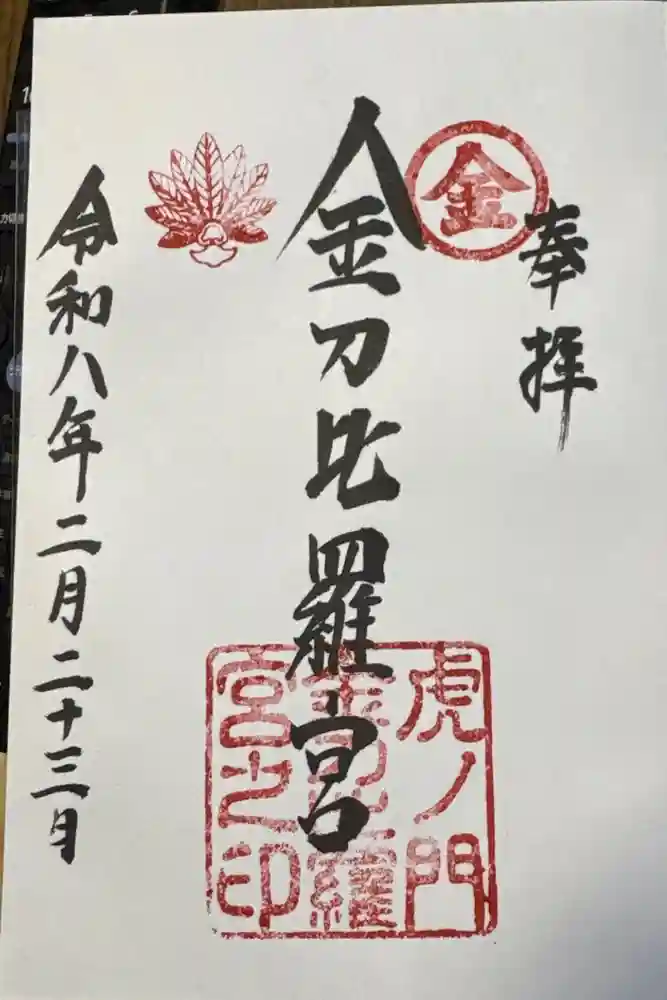 奉拝
金
金刀比羅宮
虎ノ門
金刀比羅
宮之印
令和八年二月二十三日